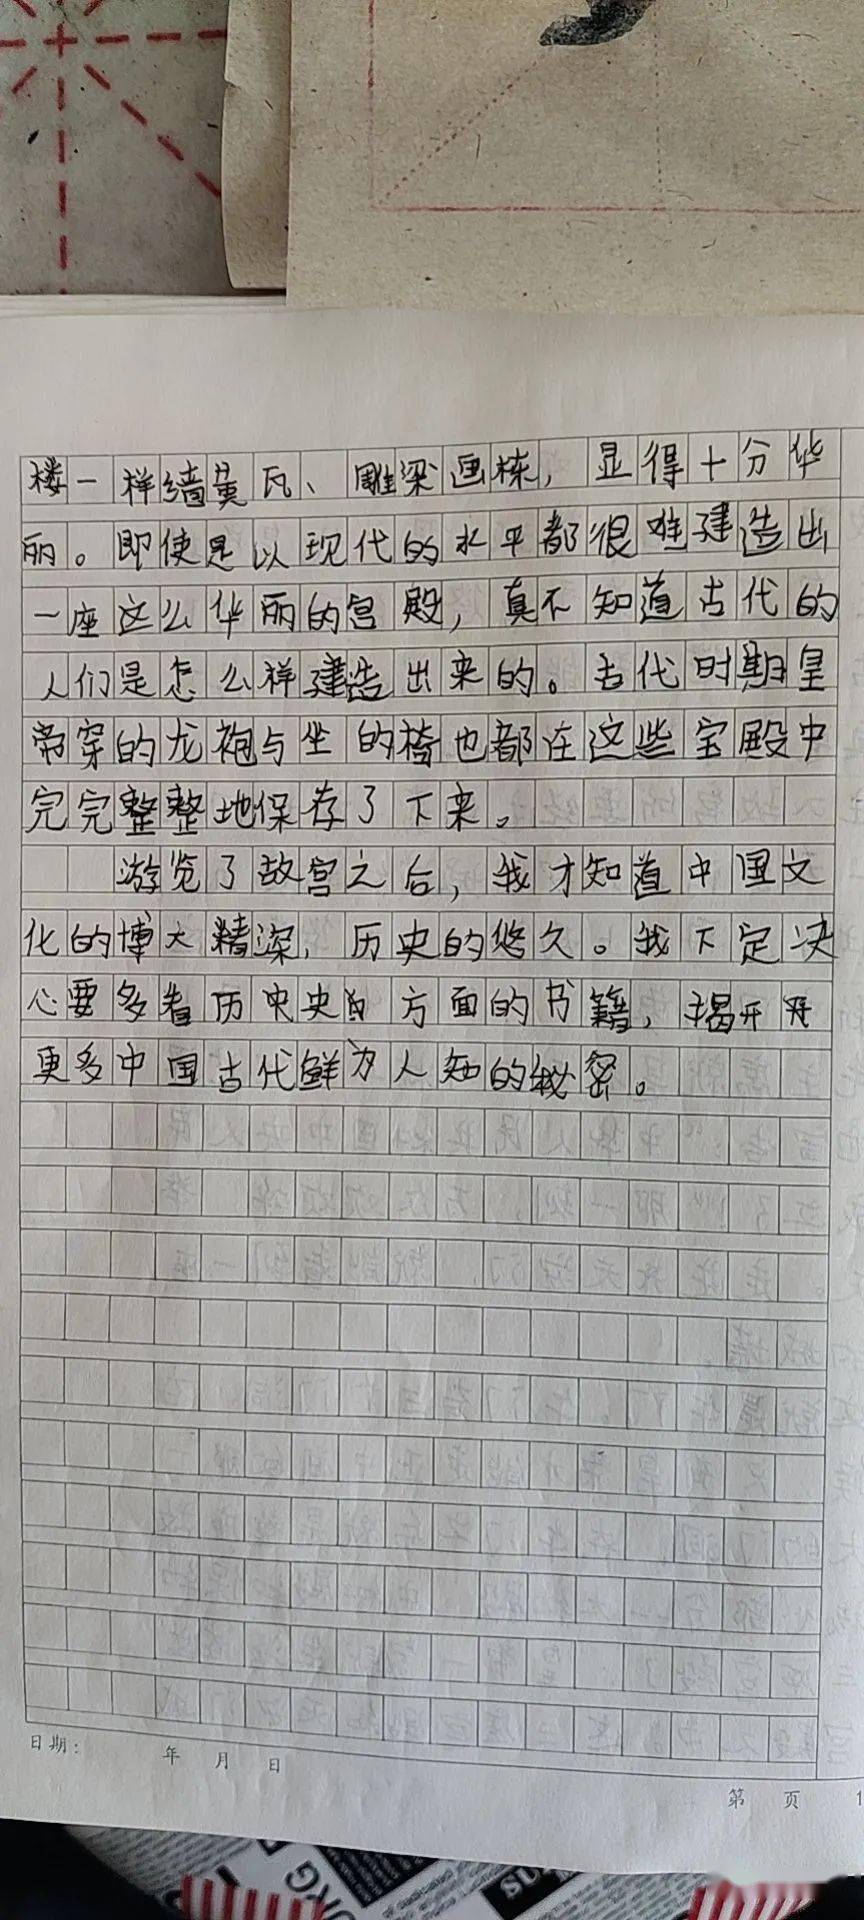 楼一样墙黄瓦、雕梁画栋，显得十分华
丽。即使是以现代的水平都很难建造出
一座这么华丽的宫殿，真不知道古代的
人们是怎么样建造出来的。古代时期皇
帝穿的龙袍与坐的椅也都在这些宝殿中
完完整整地保存了下来。
游览了故宫之后，我才知道中国文
化的博大精深，历史的悠久。我下定决
心要多看历史史的方面的书籍，揭开开
更多中国古代鲜为人知的秘密。
日期： 年 月 日
第 页